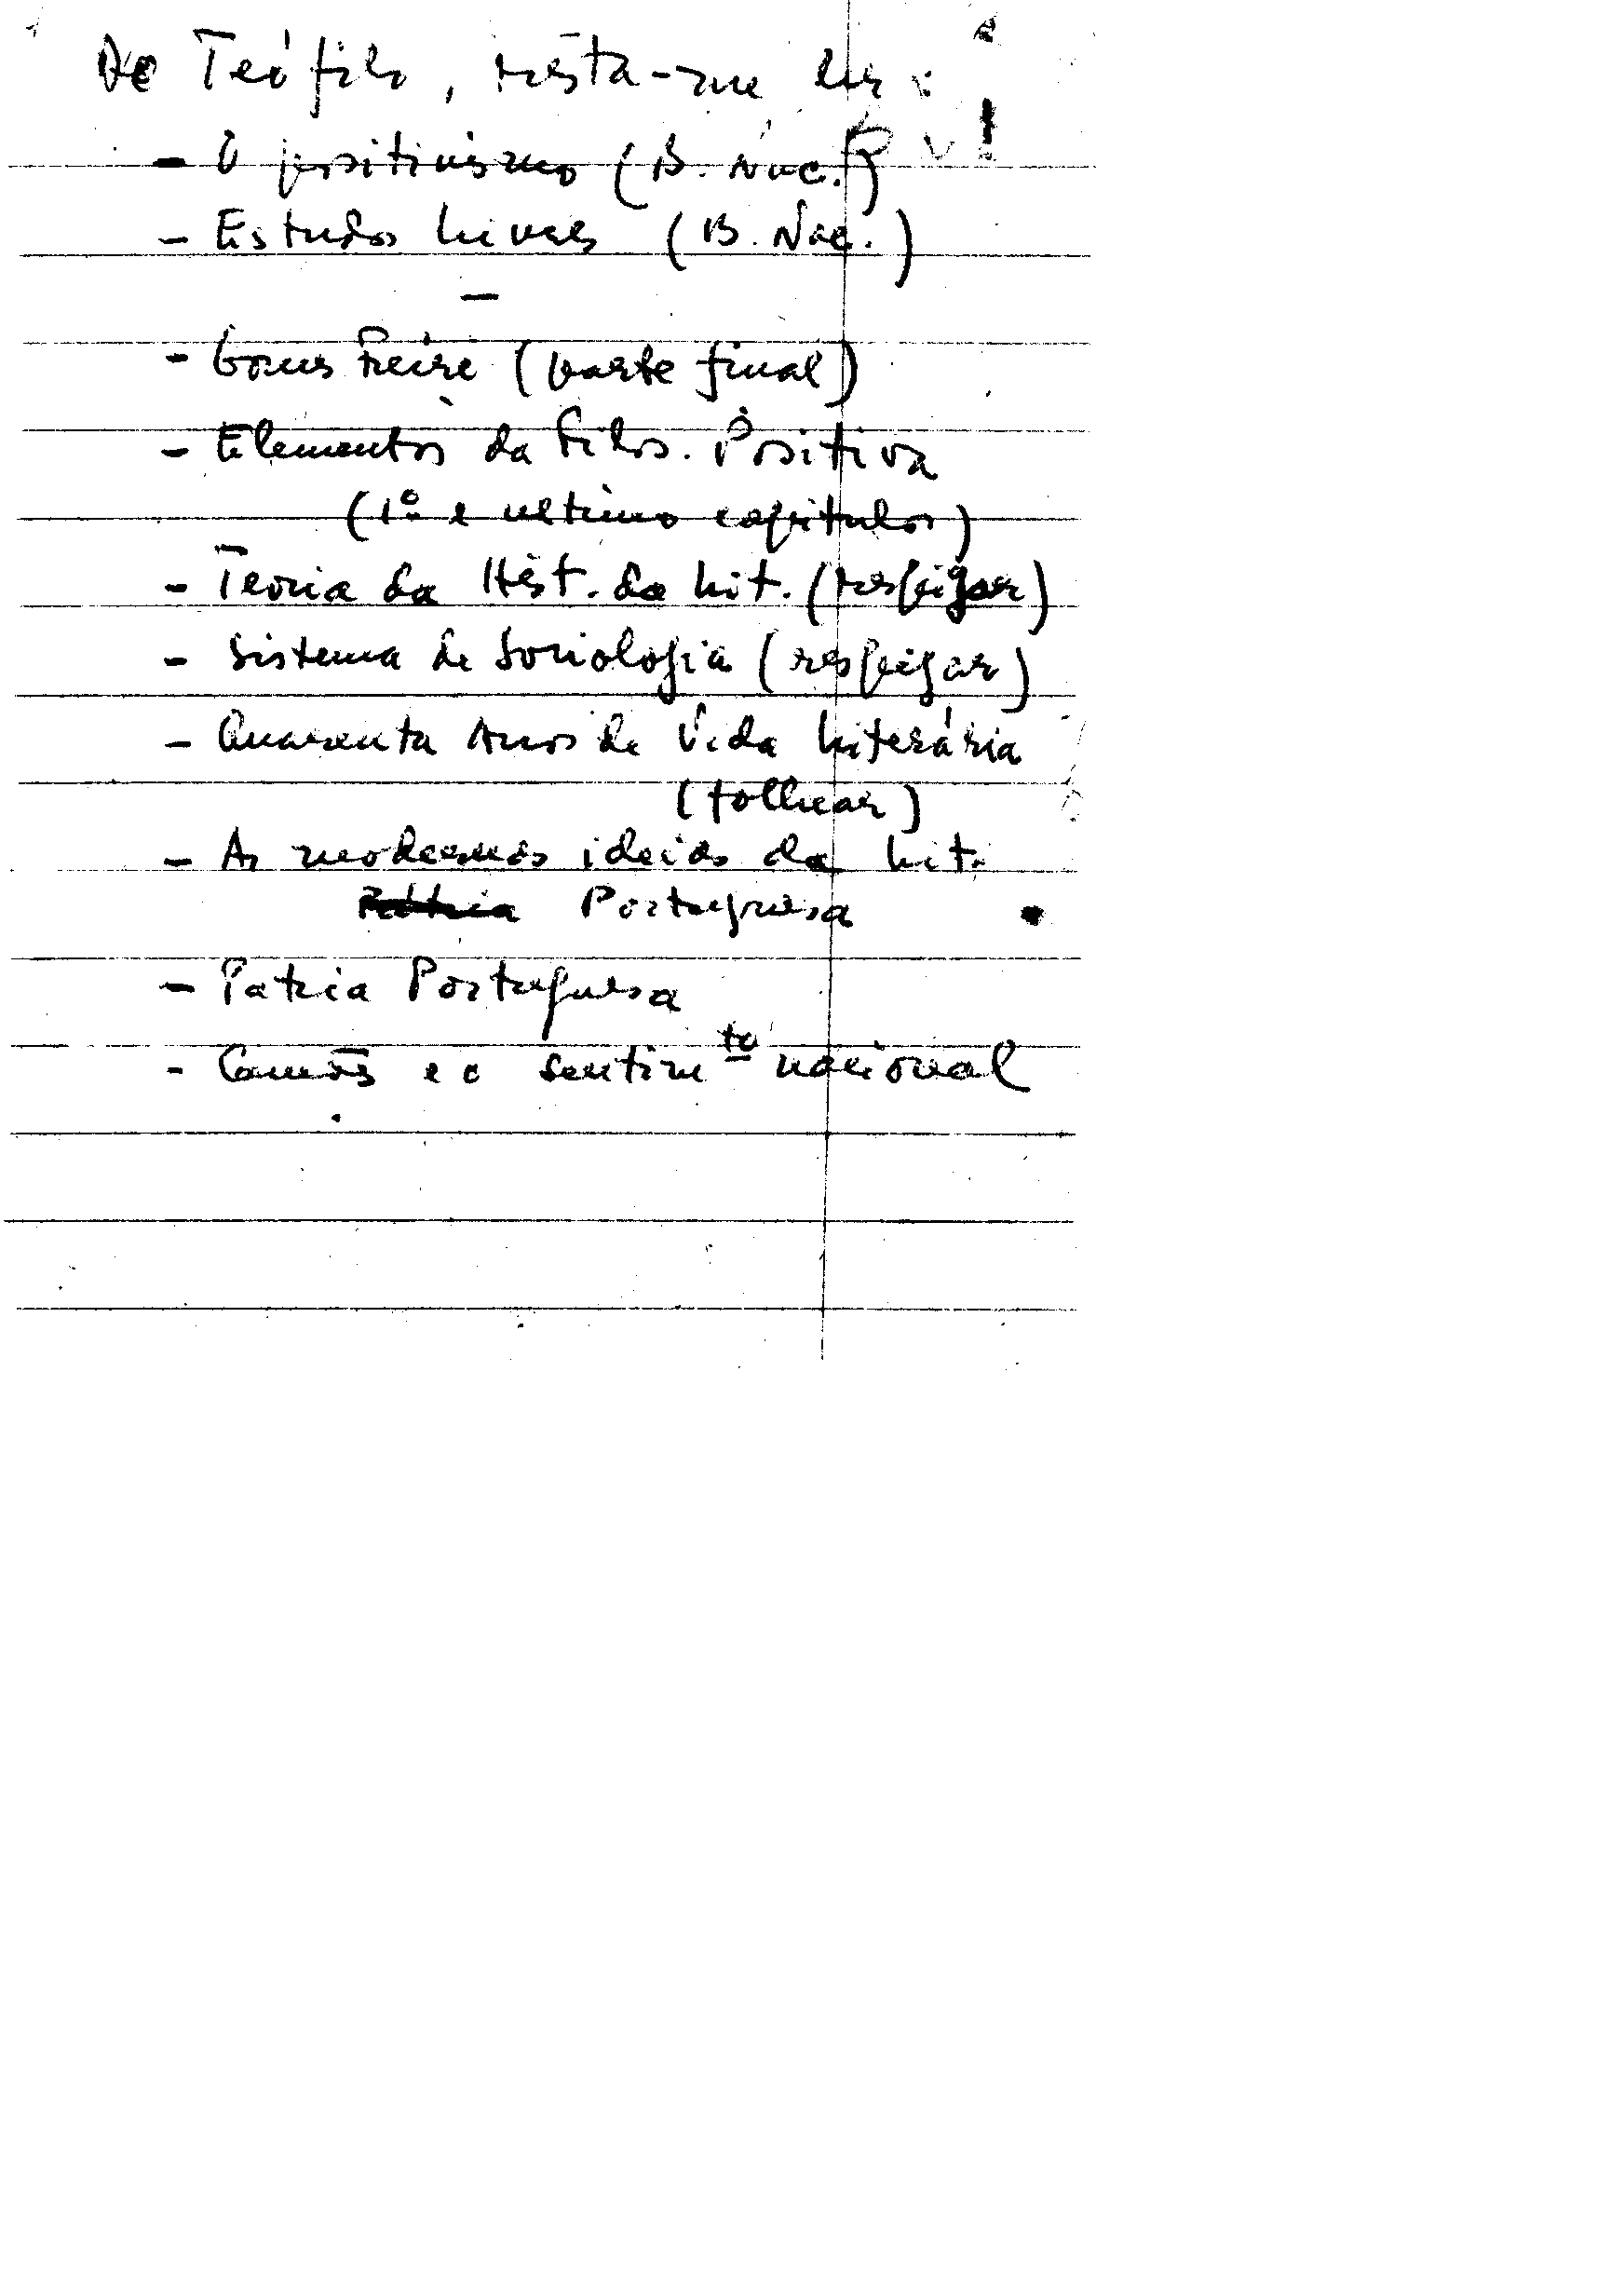 De Teófilo, resta-me ler:
- O positivismo (B. Nac.)
- Estudos Livres (B. Nac.)
-
- Gomes Freire (parte final)
- Elementos da Filos. Positiva
(1º e ultimo capitulos)
- Teoria da Hist. da Lit. (respigar)
- Sistema de Sociologia (respigar)
- Quarenta Anos de Vida Literária
(folhear)
- As modernas ideias da Lit.
Pátria Portuguesa
- Pátria Portuguesa
- Camões e o sentimto nacional